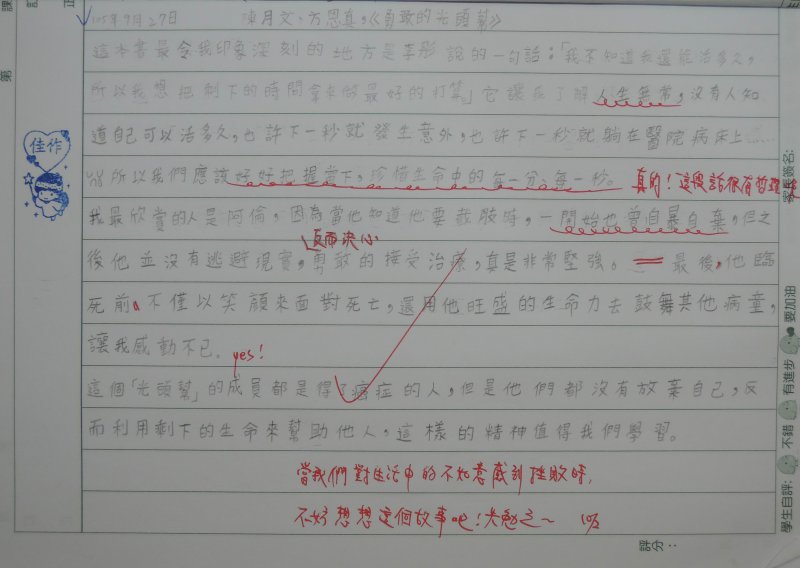 105年9月27日 陳月文、方恩真,《勇敢的光頭幫》
這本書最令我印象深刻的地方是李彤說的一句話:「我不知道我還能活多久,
所以我想把剩下的時間拿來做最好的打算」它讓我了解人生無常,沒有人知
道自己可以活多久,也許下一秒就發生意外,也許下一秒就躺在醫院病床上……
所以我們應該好好把握當下,珍惜生命中的每一分、每一秒。 真的!這段話很有哲理
佳作
我最欣賞的人是阿倫,因為當他知道他要截肢時,一開始也曾自暴自棄,但之
反而決心
後他並沒有逃避現實,勇敢的接受治療,真是非常堅強。 最後,他臨
死前,不僅以笑顏來面對死亡,還用他旺盛的生命力去鼓舞其他病童,
讓我感動不已。
yes!
這個「光頭幫」的成員都是得了癌症的人,但是他們都沒有放棄自己,反
而利用剩下的生命來幫助他人,這樣的精神值得我們學習。
當我們對生活中的不如意感到挫敗時,
不妨想想這個故事吧!共勉之~
評分:
學生自評: 不錯 有進步 要加油
家長簽名:
第
課